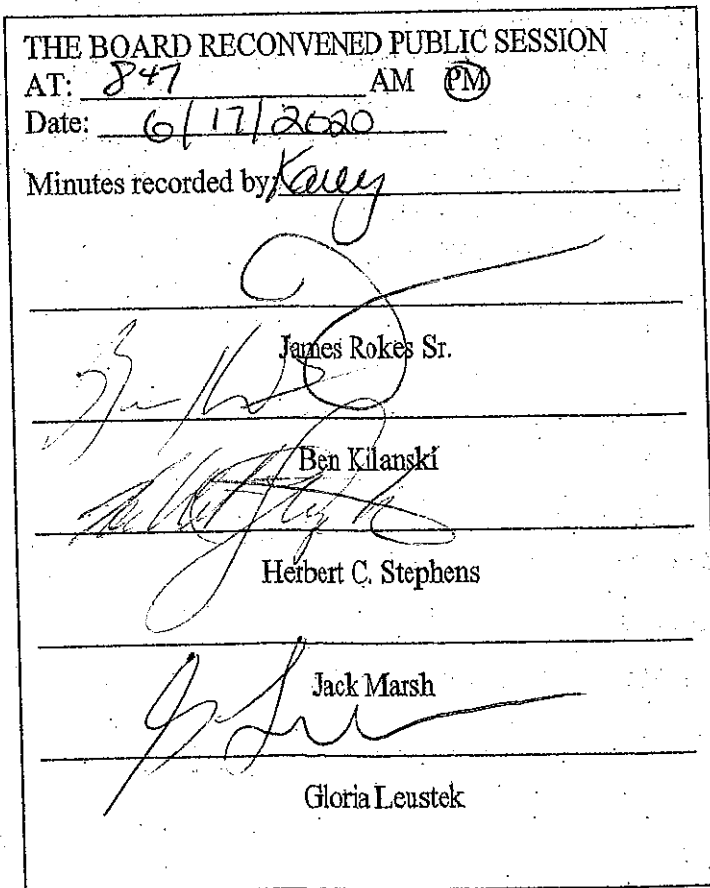 THE BOARD RECONVENED PUBLIC SESSION
AT: 847 AM PM
Date: 6/17/2020
Minutes recorded by:
James Rokes Sr.
Ben Kilanski
Herbert C. Stephens
Jack Marsh
Gloria Leustek